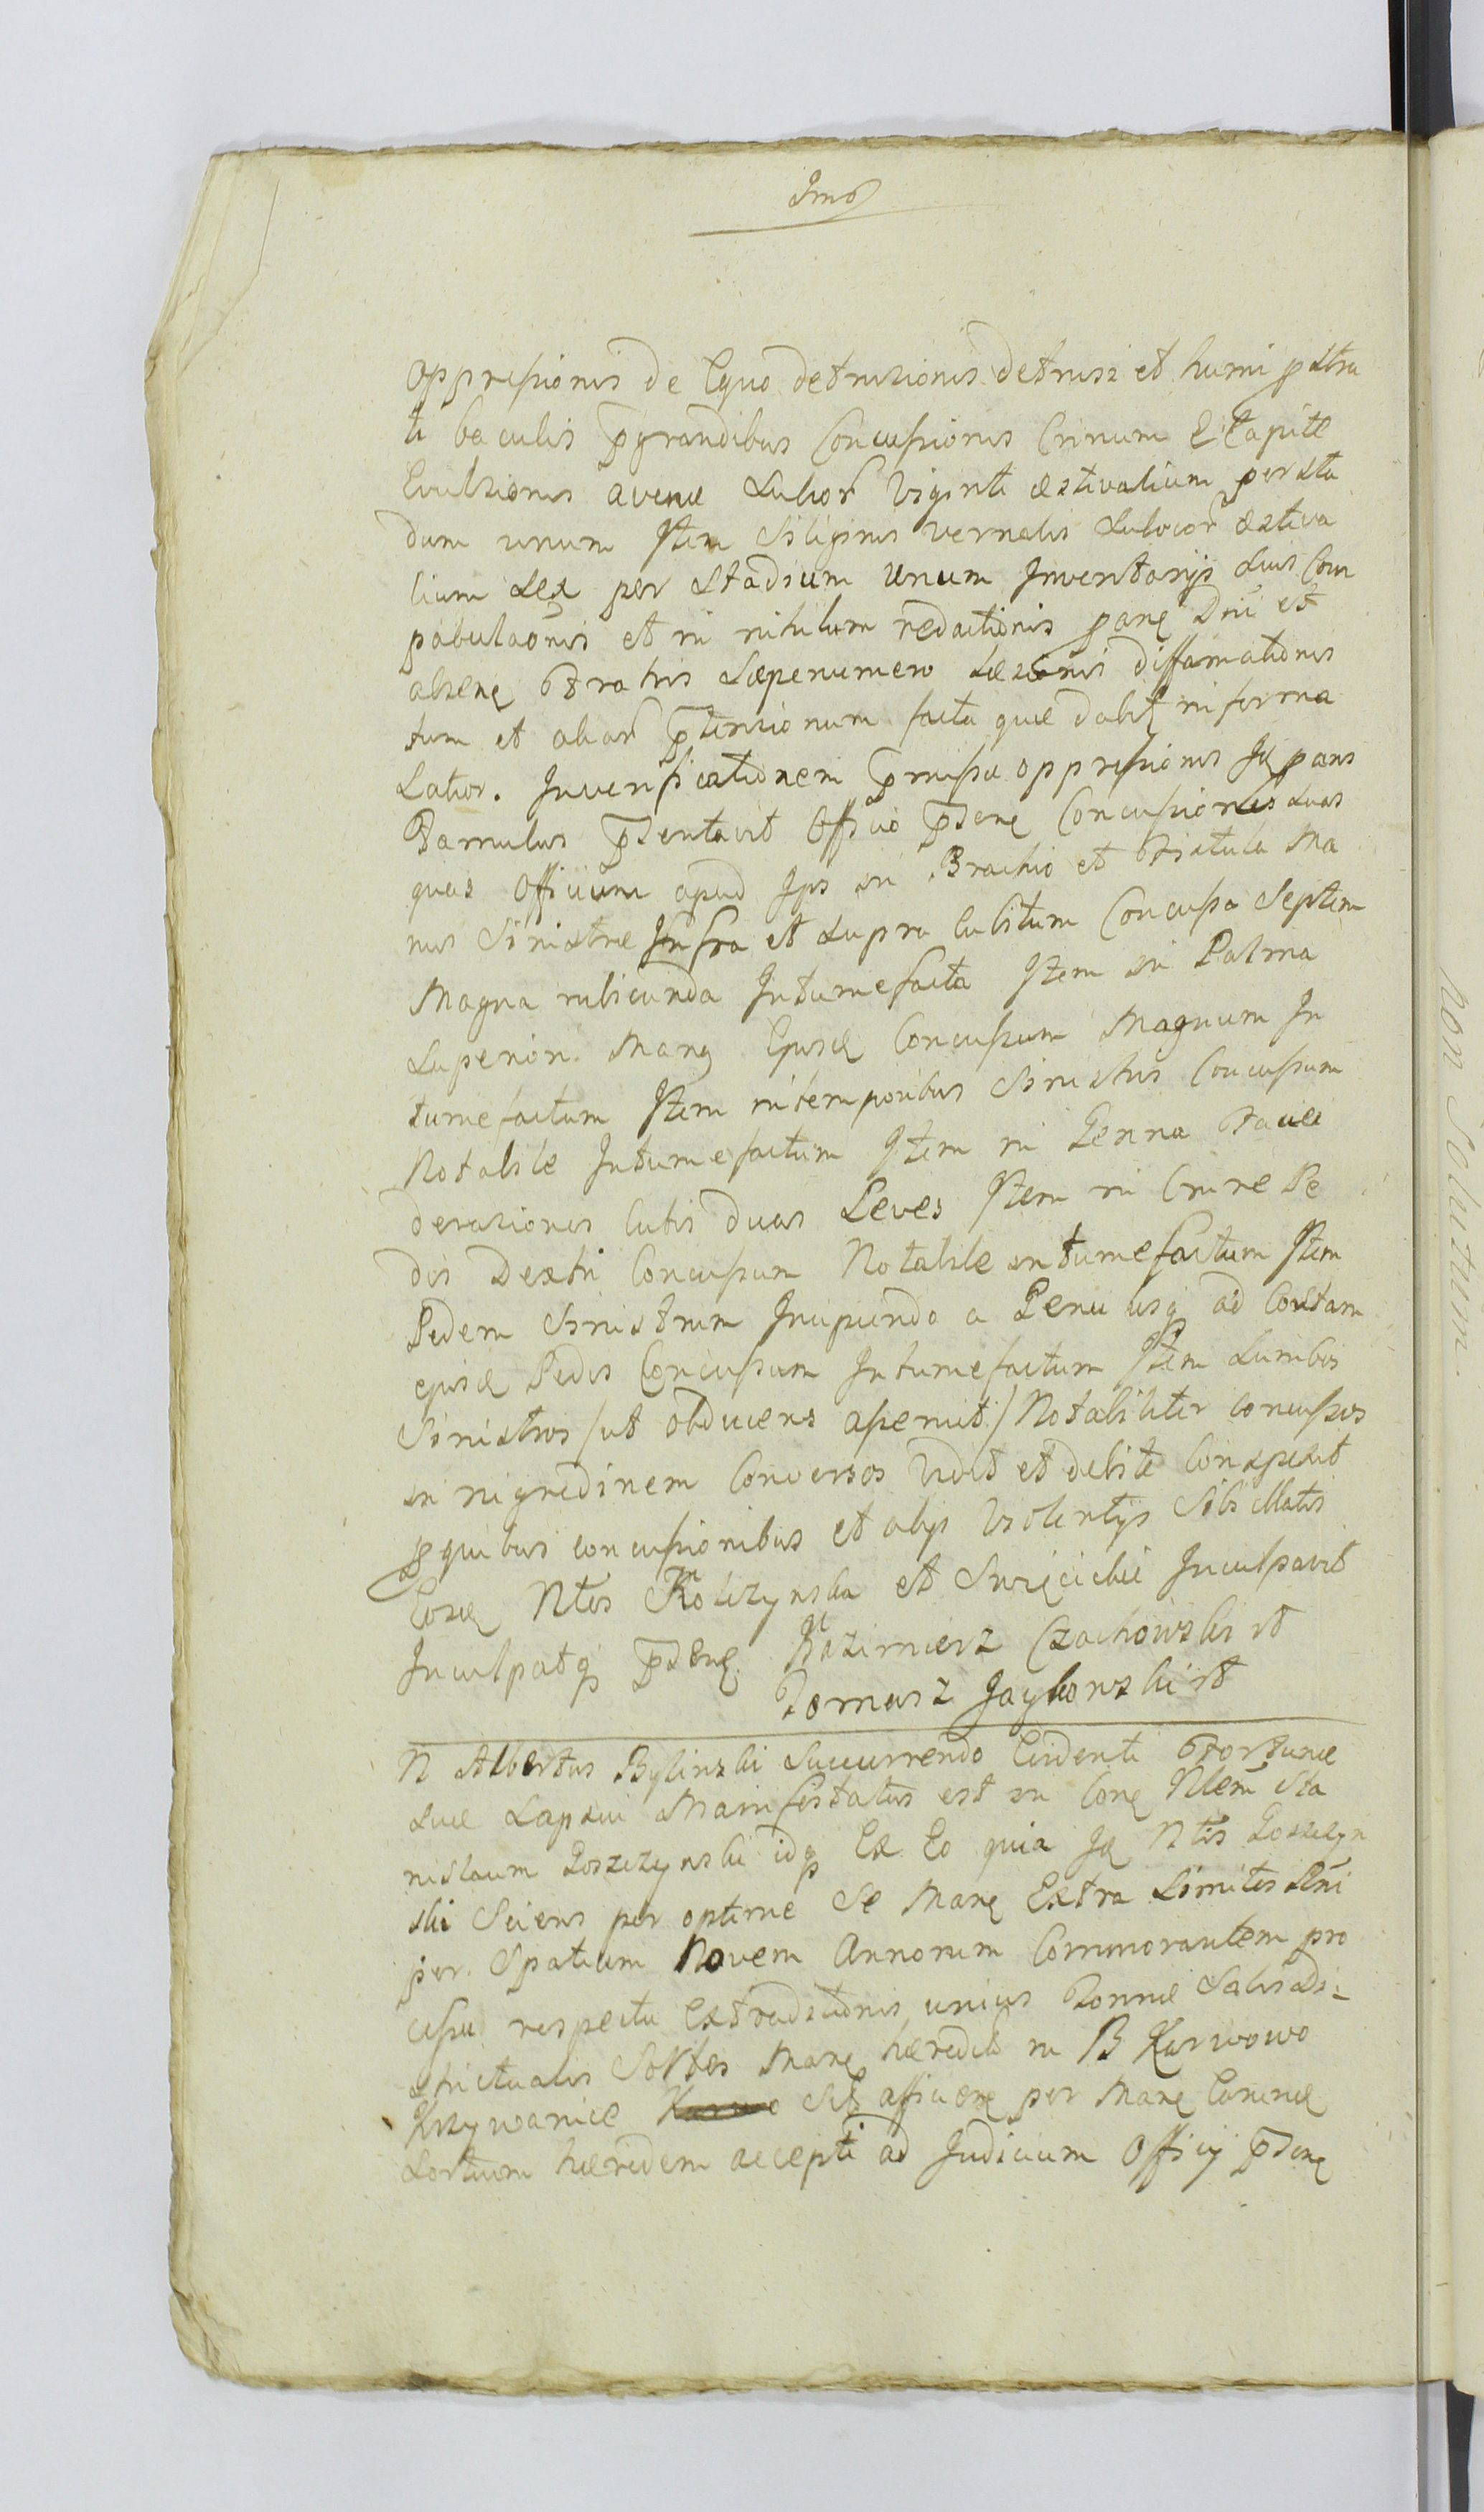 Imo
oppressionis de Equo detrusionis detrusi et humi pstra
ti baculis pgrandibus Concussionis Crinum E Capite
Evulsionis avenæ Sulcor Viginti æstivalium per sta
dum unum Item Siliginis vernalis Sulcor æstiva
lium Sex per Stadium Unum Inventarijs suis Com
pabulaonis et in nihilum redactionis pans Dni et
absens Fratris Sæpenumero Læsionis diffamationis
tum et aliar ptensionum facta quæ dabit in forma
Latior. Inverificationem pmissæ oppressionis Id pans
Famulus psentavit Officio psens Concussiones suas
quas Officium apud Ips in Brachio et Fistula Ma
nus Sinistræ Infra et supra Cubitum Concussa Septem
Magna rubicunda Intumefacta Item in Palma
Superiori Manus Ejusd Concussum Magnum In
tumefactum Item in temporibus Sinistris Concussum
Notabile Intumefactum Item in Genna Faciei
derasiones Cutis duas Leves Item in Crure Pe
dis Dextri Concussum Notabile intumefactum Item
Pedem Sinistrum Incipiendo a Genu usq ad Costam
ejusd Pedis Concussum Intumefactum Item Lumbos
Sinistros /ut obducens aperuit/ Notabiliter concussos
in nigredinem Conversos Vidit et debite Conspexit
p quibus concussionibus et alijs Violentijs Sibi illatis
Eosd Ntes Kolczynski et Swięcicki Inculpavit
Inculpatq psens. Kazimierz Czachowski st
Tomasz Jaykowski st
N Albertus Bylinski Succurrendo Evidenti Fortunæ
suæ Lapsui Manifestatus est in Cong Nlem Sta
nislaum Goszczynski idq Ex Eo quia Id Ntis Goszczyn
ski Sciens per optime Se Mane Extra Limites Pni
per Spatium Novem Annorum Commorantem pro
cessu respectu Extraditionis unius Tonnæ Salis di-
strictualis Sortes Mane hæredis in B Karwowo
Krzywanice Sibi afficere per Mane Comune
Sortium hæredem accepti ad Judicium Officij psens
Non Solutum.